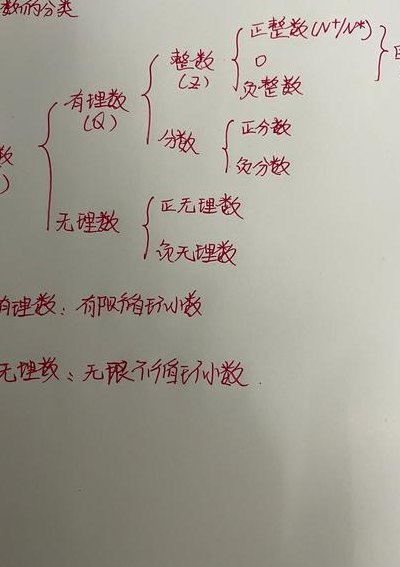 数的分类
正整数(N⁺/N*)
整数
(Z)
0
负整数
有理数
(Q)
正分数
分数
负分数
数
)
正无理数
无理数
负无理数
有理数：有限循环小数
无理数：无限不循环小数.